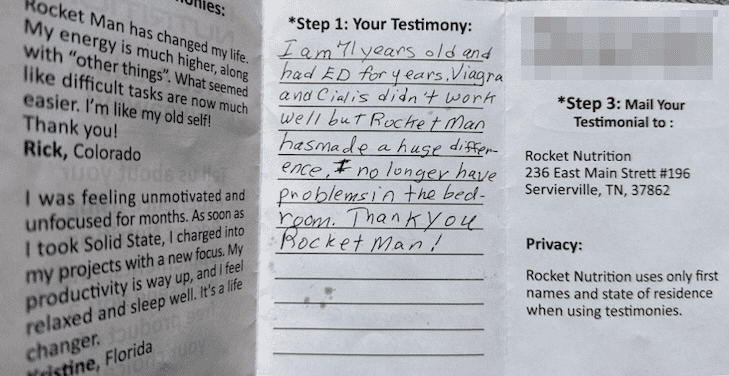 onies:
Rocket Man has changed my life.
My energy is much higher, along
with “other things”. What seemed
like difficult tasks are now much
easier. I’m like my old self!
Thank you!
Rick, Colorado
I was feeling unmotivated and
unfocused for months. As soon as
I took Solid State, I charged into
my projects with a new focus. My
productivity is way up, and I feel
relaxed and sleep well. It’s a life
changer.
Kristine, Florida
*Step 1: Your Testimony:
I am 71 years old and
had ED for years. Viagra
and Cialis didn't work
well but Rocket Man
has made a huge differ-
ence. I no longer have
problems in the bed-
room. Thank you
Rocket Man!
*Step 3: Mail Your
Testimonial to :
Rocket Nutrition
236 East Main Strett #196
Servierville, TN, 37862
Privacy:
Rocket Nutrition uses only first
names and state of residence
when using testimonies.